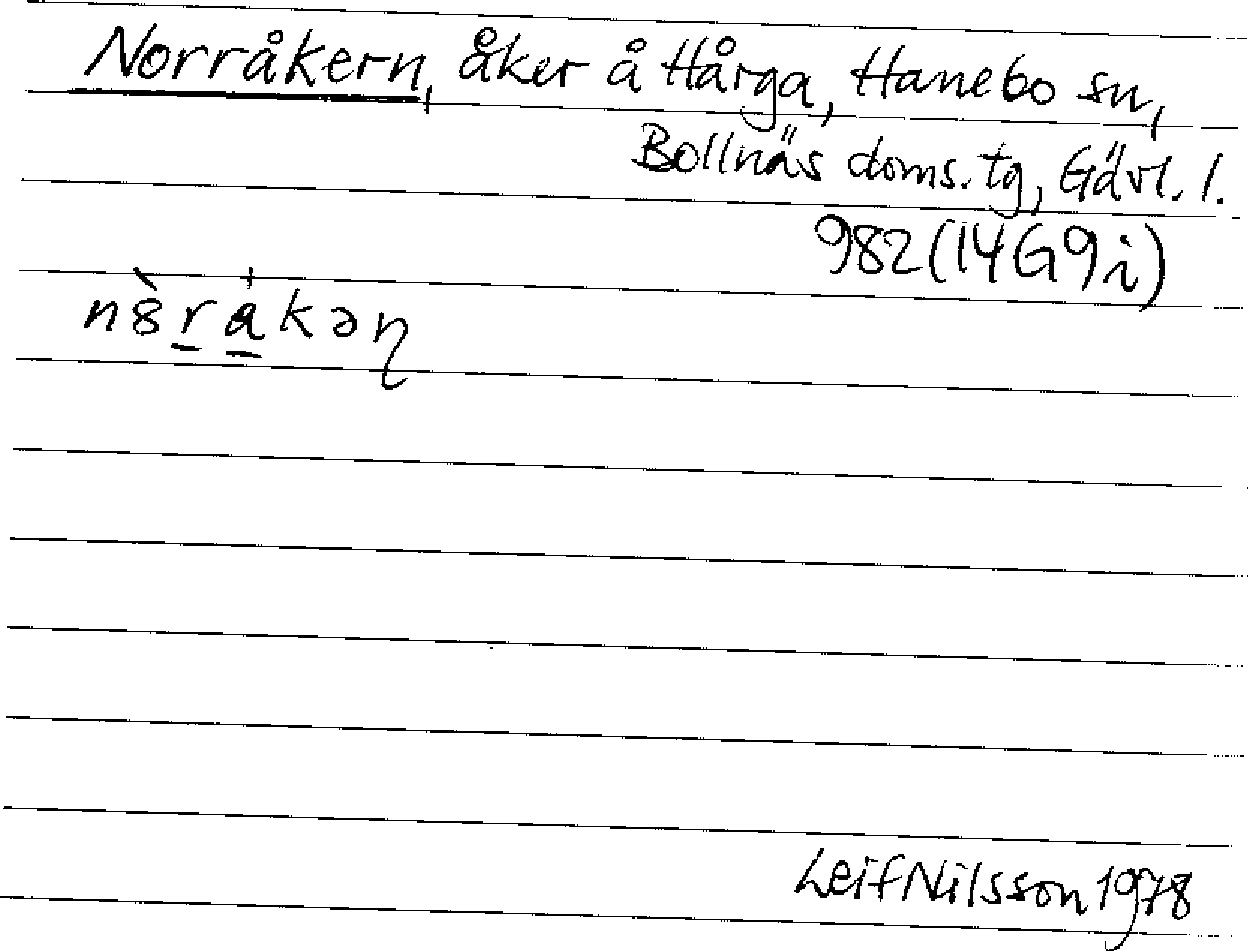 Norråkern, åker å Hårga, Hanebo sn,
Bollnäs doms. tg, Gävl. l.
982 (14G9i)
n8̀rákəη
Leif Nilsson 1978